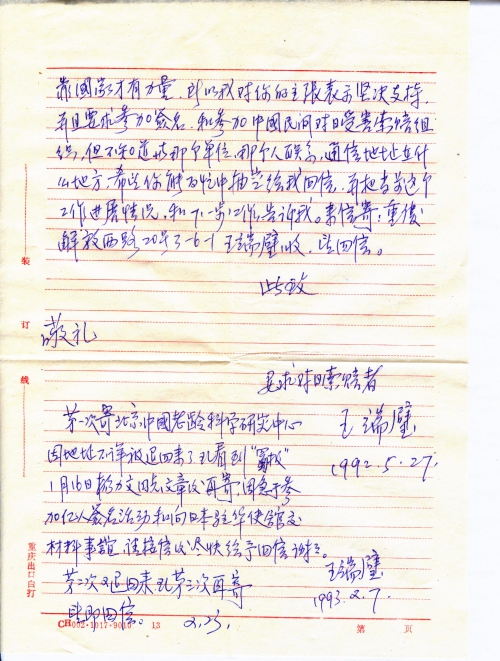 靠國家才有力量，所以我对你的主張表示坚决支持，
并且要求參加签名，和參加中國民间对日受害索赔组
织，但不知道該那个单位，那个人联系，通信地址在什
么地方，希望你能百忙中抽空给我回信，再把当前这个
工作进展情况，和下一步工作，告诉我。来信寄：重慶
解放西路20号3-6-1 王端璧收，望回信。
此致
敬礼
要求对日索赔者
王端璧
1992.5.27.
第一次寄北京中国老龄科学研究中心
因地址不详被退回来了，
1月16日 文 文章 再寄，因急于参
加亿人签名活动和向日本驻华使館交
材料事誼，请接信 尽快给予回信
王端璧
1993.2.7.
第二次又退回来 第三次再寄
即回信。 2.23.
装
订
线
重庆出口白打
CH002·1017·9010 13
第 页